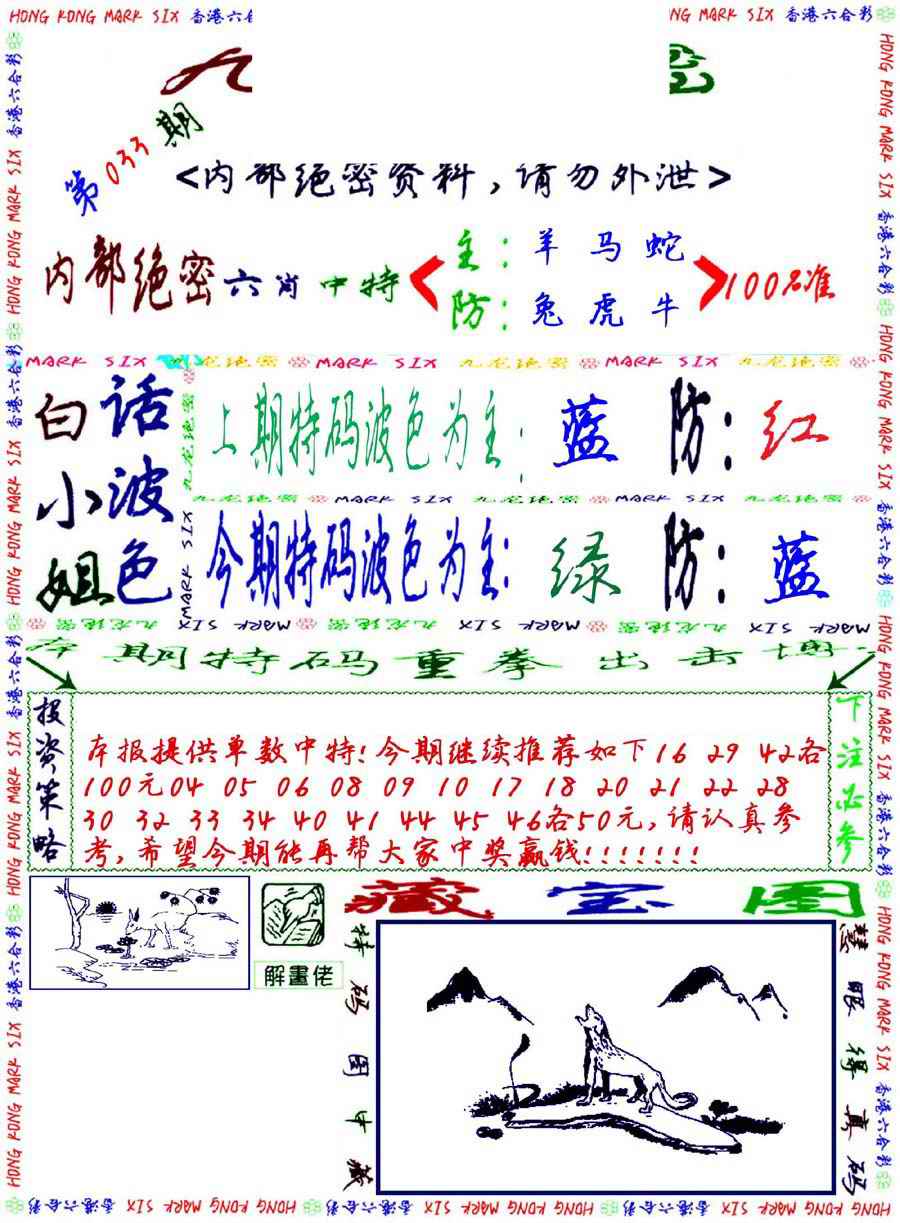 HONG KONG MARK SIX 香港六合彩
第033期
<内部绝密资料，请勿外泄>
内部绝密六肖中特
主：羊 马 蛇
防：兔 虎 牛
100%准
MARK SIX 九龙绝密 MARK SIX 九龙绝密 MARK SIX 九龙绝密
白小姐
话波色
上期特码波色为主：蓝 防：红
九龙绝密 MARK SIX 九龙绝密 MARK SIX 九龙绝密
今期特码波色为主：绿 防：蓝
九龙绝密 MARK SIX 九龙绝密 MARK SIX 九龙绝密 MARK SIX
本期特码重拳出击
投资策略
本报提供单数中特!今期继续推荐如下16 29 42各
100元04 05 06 08 09 10 17 18 20 21 22 28
30 32 33 34 40 41 44 45 46各50元,请认真参
考,希望今期能再帮大家中奖赢钱!!!!!!!
下注必参
解畫佬
藏宝图
特码图中藏
慧眼得真码
HONG KONG MARK SIX 香港六合彩